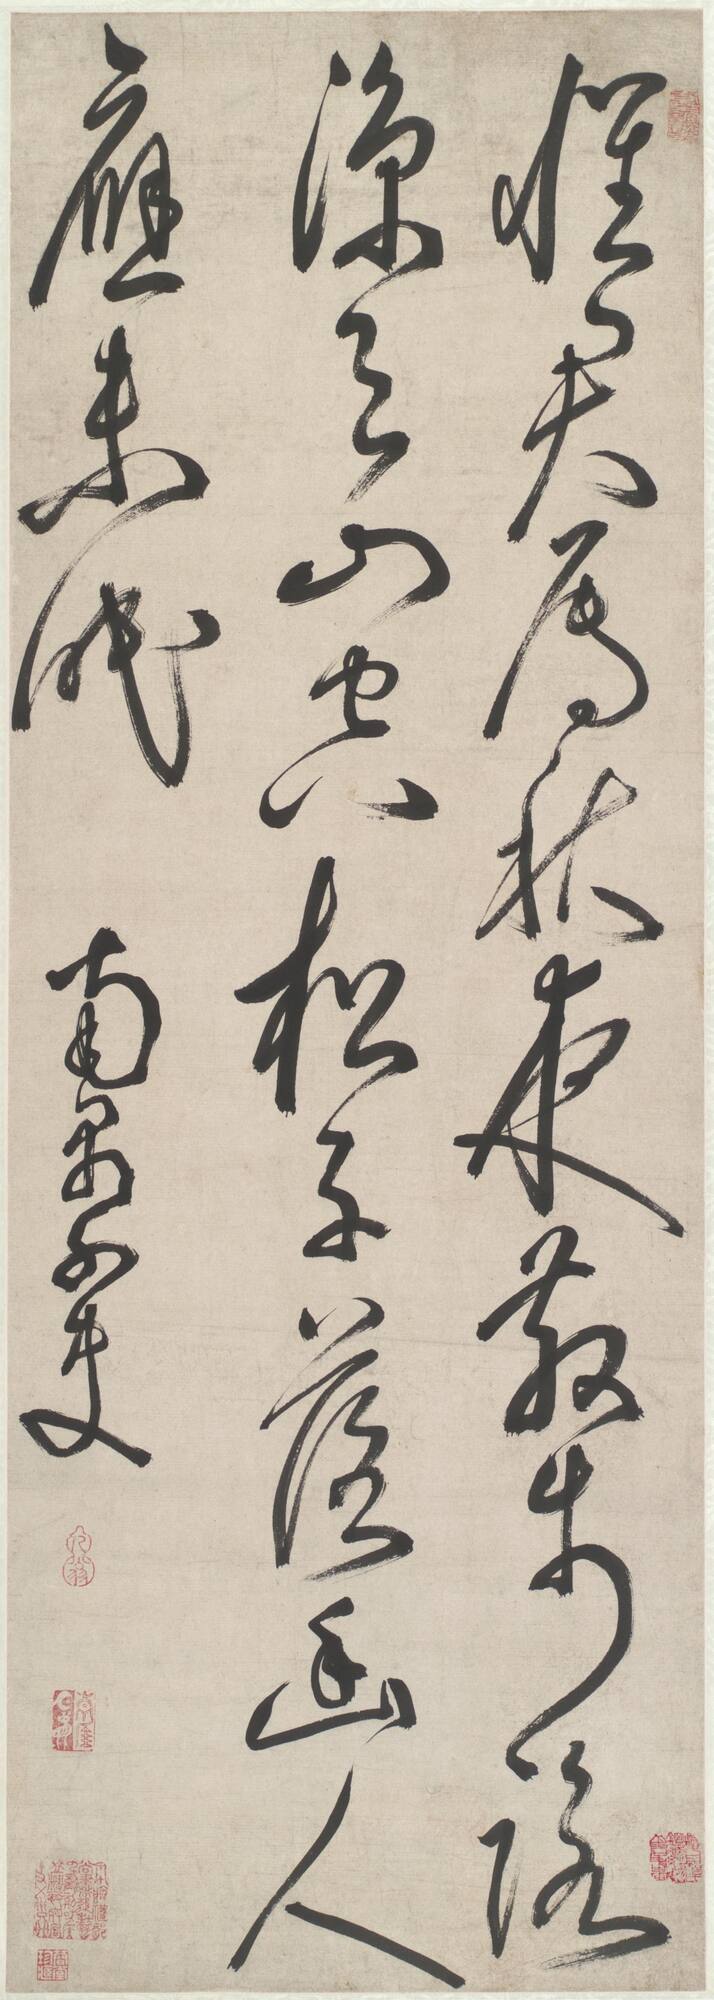 懷君屬秋夜散步詠
涼天山空松子落幽人
應未眠 南禺外史